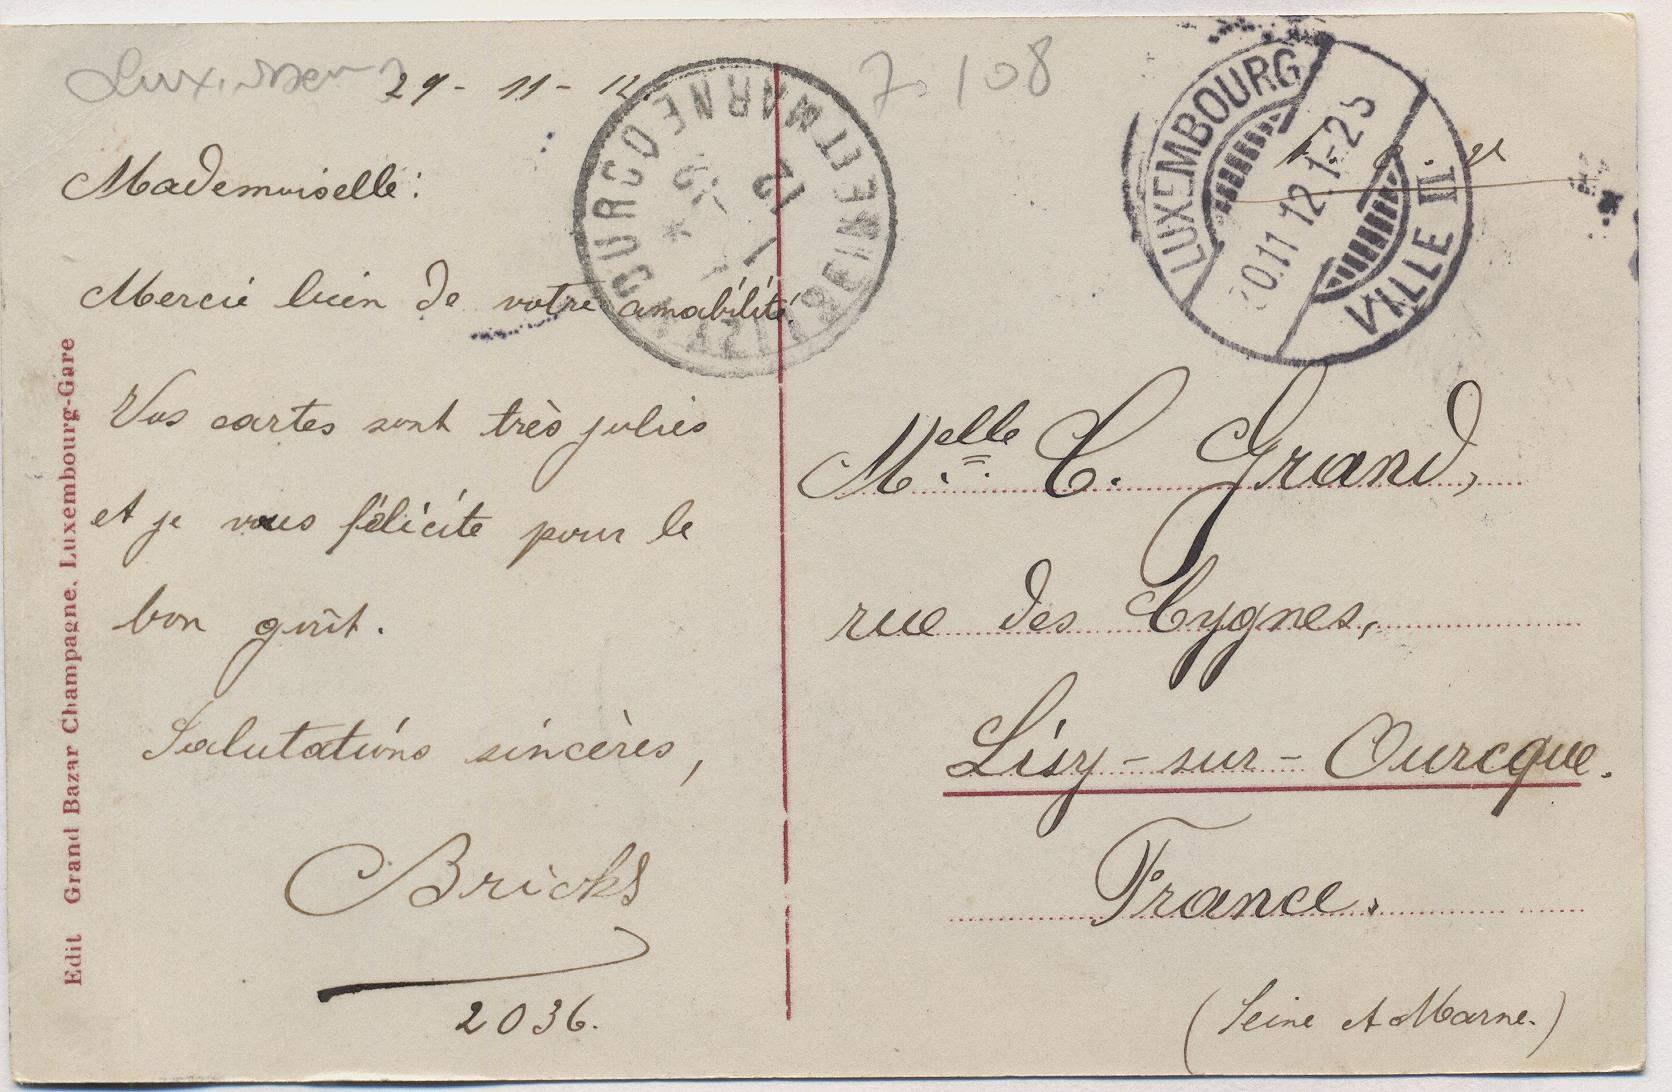 29-11-12.
7. 108
Mademoiselle:
Mercie bien de votre amabilité.
Vos cartes sont très jolies
et je vous félicite pour le
bon goût.
Salutations sincères,
Bricks
2036.
Edit Grand Bazar Champagne. Luxembourg-Gare
LIZY-S-OURCQ SEINE ET MARNE
LUXEMBOURG
VILLE II
0.11 12. 1-2S
Melle C. Grand,
rue des Cygnes,
Lisy-sur-Ourcque.
France.
(Seine et Marne.)